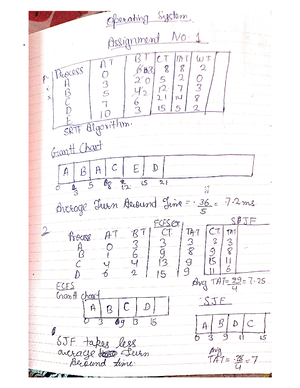 Operating System
Assignment No. 1
Process AT BT CT TAT WT
A 0 8 8 2
B 3 2 5 2 0
C 5 4 12 7 3
D 7 6 21 14 8
E 10 3 15 5 2
SRTF Algorithm.
Gantt Chart
A B A C E D
0 3 5 8 12 15 21
Average Turn Around Time = 36/5 = 7.2 ms
2
FCFS SRJF
Process AT BT CT TAT CT TAT
A 0 3 3 3 3 3
B 1 6 9 8 9 8
C 4 4 13 9 15 11
D 6 2 15 9 11
FCFS Avg TAT = /4 = 7.25
Gantt chart SJF
A B C D
0 3 9 13 15
A B D C
0 3 9 11 15
SJF takes less
average Turn
Around time.
Avg
TAT = /4 = 7